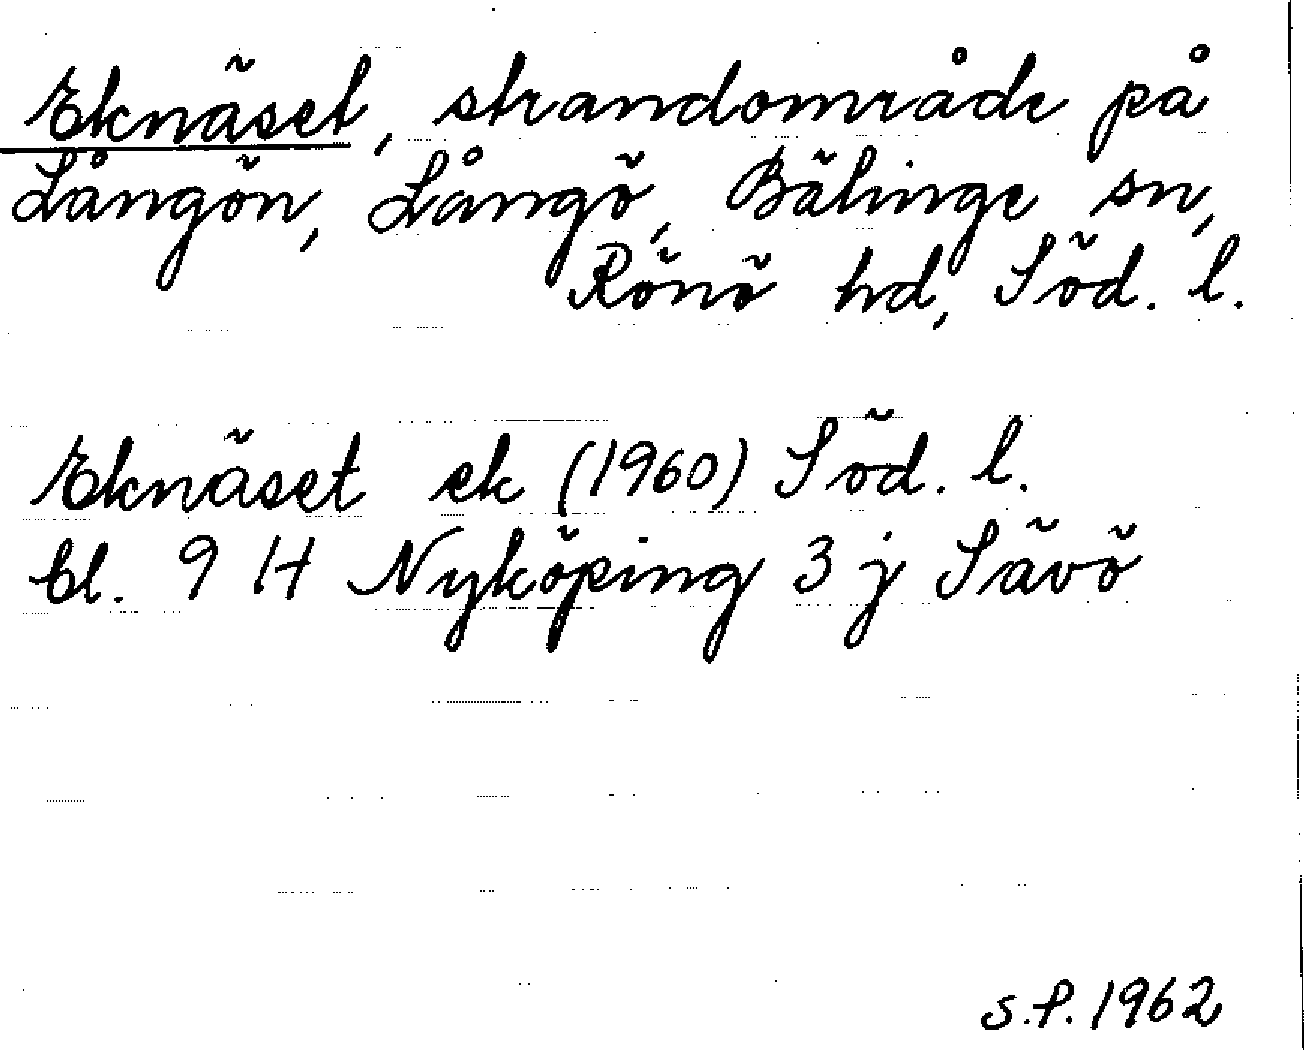 Eknäset, strandområde på
Långön, Långö, Bälinge sn,
Rönö hd, Söd. l.
Eknäset ek (1960) Söd. l.
bl. 9 H Nyköping 3 j Sävö
S.P. 1962